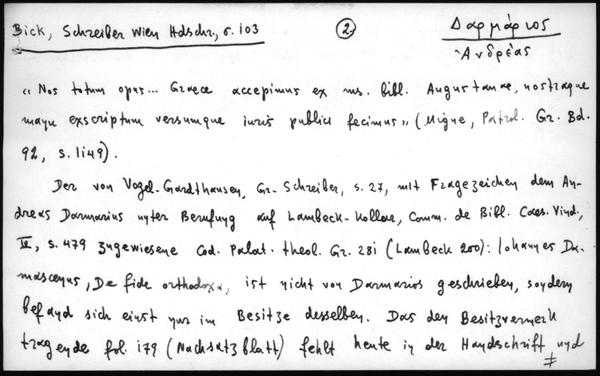 Bick, Schreiber Wien Hdschr., σ. 103
2.
Δαρμάριος
Ἀνδρέας
"Nos totum opus... Graece accepimus ex ms. bibl. Augustanae, nostraque
manu exscriptum versumque iuris publici fecimus" (Migne, Patrol. Gr. Bd.
92, S. 1149).
Der von Vogel-Gardthausen, Gr. Schreiber, S. 27, mit Fragezeichen dem An-
dreas Darmarius unter Berufung auf Lambeck-Kollar, Comm. de Bibl. Caes. Vind.,
S. 479 zugewiesene Cod. Palat. theol. Gr. 281 (Lambeck 200): Iohannes Da-
mascenus, De fide orthodoxa, ist nicht von Darmarios geschrieben, sondern
befand sich einst nur im Besitze desselben. Das den Besitzvermerk
tragende fol. 179 (Nachsatzblatt) fehlt heute in der Handschrift und
≠